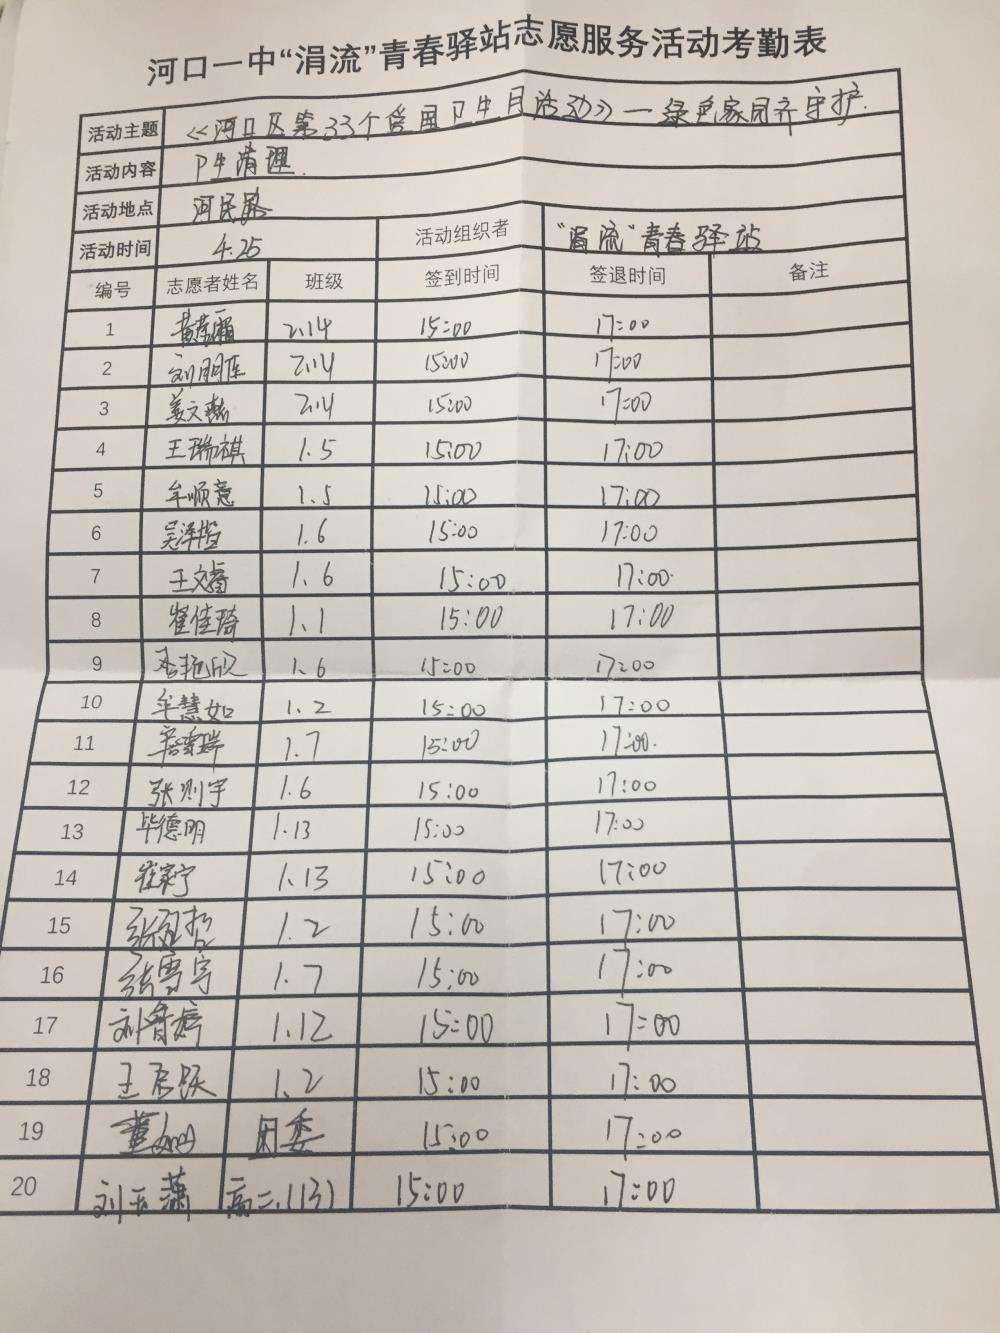 河口一中“涓流”青春驿站志愿服务活动考勤表
活动主题 《河口区第33个爱国卫生月活动》—绿色家园齐守护.
活动内容 卫生清理.
活动地点 河民路
活动时间 4.25 活动组织者 “涓流”青春驿站
编号 志愿者姓名 班级 签到时间 签退时间 备注
1 2.14 15:00 17:00
2 2.14 15:00 17:00
3 2.14 15:00 17:00
4 王瑞祺 1.5 15:00 17:00
5 牟顺意 1.5 15:00 17:00
6 1.6 15:00 17:00
7 王文睿 1.6 15:00 17:00
8 崔佳琦 1.1 15:00 17:00
9 1.6 15:00 17:00
10 牟慧如 1.2 15:00 17:00
11 1.7 15:00 17:00.
12 张则宇 1.6 15:00 17:00
13 毕德明 1.13 15:00 17:00
14 崔家宁 1.13 15:00 17:00
15 1.2 15:00 17:00
16 1.7 15:00 17:00
17 1.12 15:00 17:00
18 王启跃 1.2 15:00 17:00
19 团委 15:00 17:00
20 刘玉潇 高二.(13) 15:00 17:00